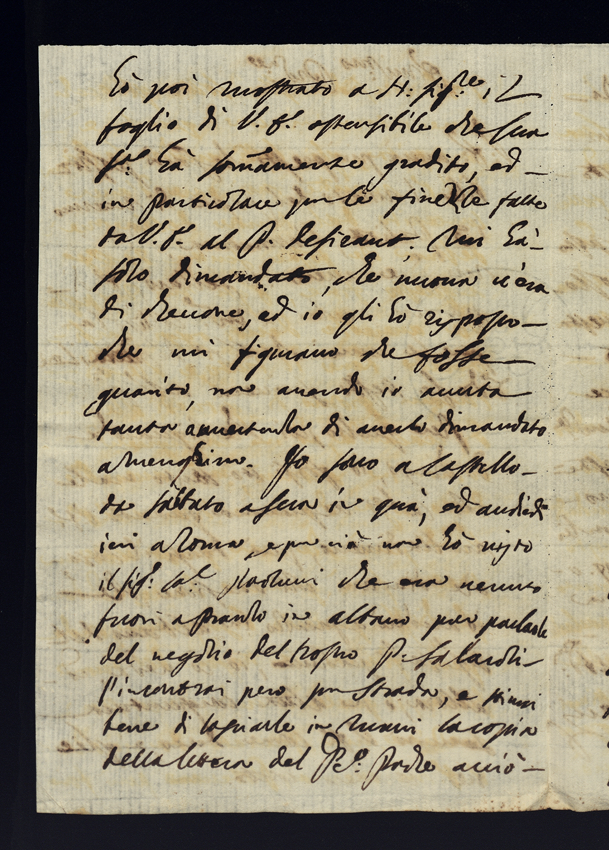 Hò poi mostrato a N: Sig.re il
foglio di V. E. ostensibile che sua
S.tà hà sommamente gradito, ed
in particolare per le finezze fatte
da V. E. al P. Desirant. Mi hà
solo dimandato, che nuova v'era
di che, ed io gli hò risposto
che mi figuravo che fosse
guarito, non avendo io avuta
tanta avvertenza di averlo dimandato
a Menghino. Io sono a Castello
da sabbato a sera in quà, ed andiedi
ieri a Roma, e per ciò non hò visto
il Sig.r Ca.l Paolucci che era venuto
fuori a pranzo in Albano per parlare
del negozio del nostro P. Salaroli
l'incontrai però per strada, e stimai
bene di lasciarle in mani la copia
della lettera del P. Padre acciò